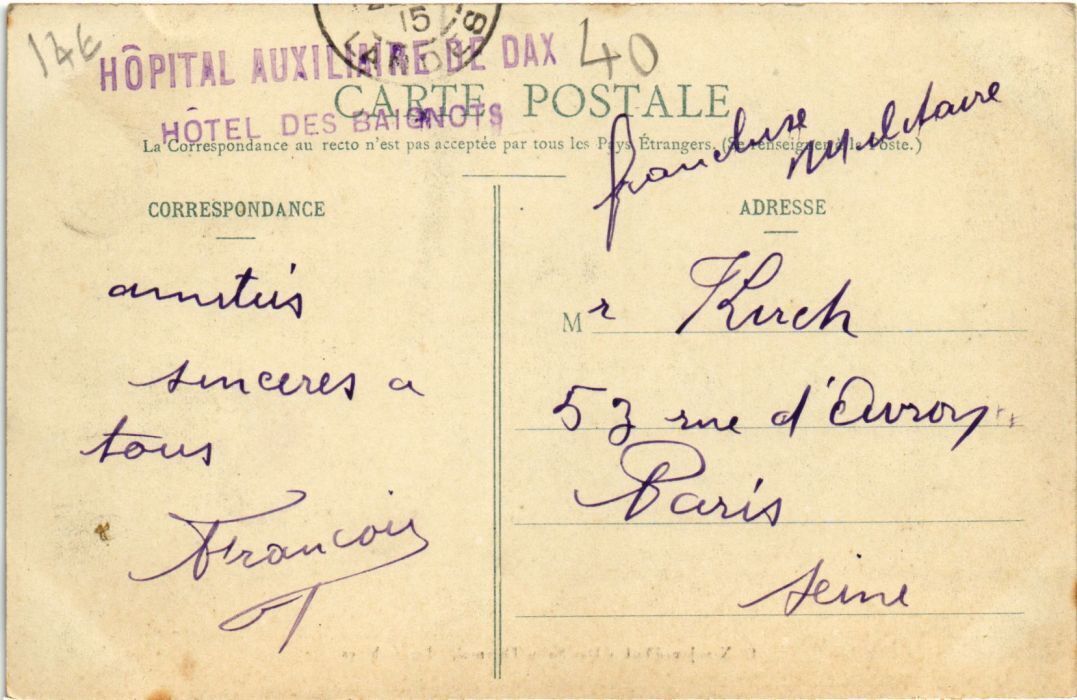 17E
15
HÔPITAL AUXILIAIRE DE DAX
40
CARTE POSTALE
HÔTEL DES BAIGNOTS
La Correspondance au recto n'est pas acceptée par tous les Pays Étrangers. (Se renseigner à la Poste.)
franchise
Militaire
CORRESPONDANCE
amitiés
sincères a
tous
François
ADRESSE
Mr Kirch
53 rue d'Avron
Paris
Seine